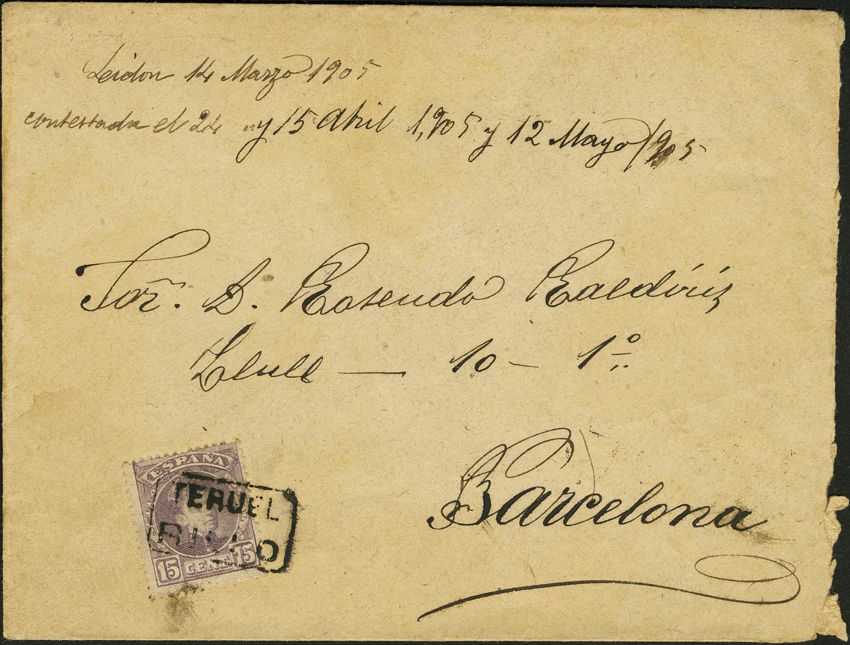 14 Marzo 1905
contestada el 24 y 15 Abril 1,905 y 12 Mayo 1905
Sor. D. Rosendo Raldiris
Llull — 10 — 1º
Barcelona
ESPAÑA
TERUEL
15 CENT 15